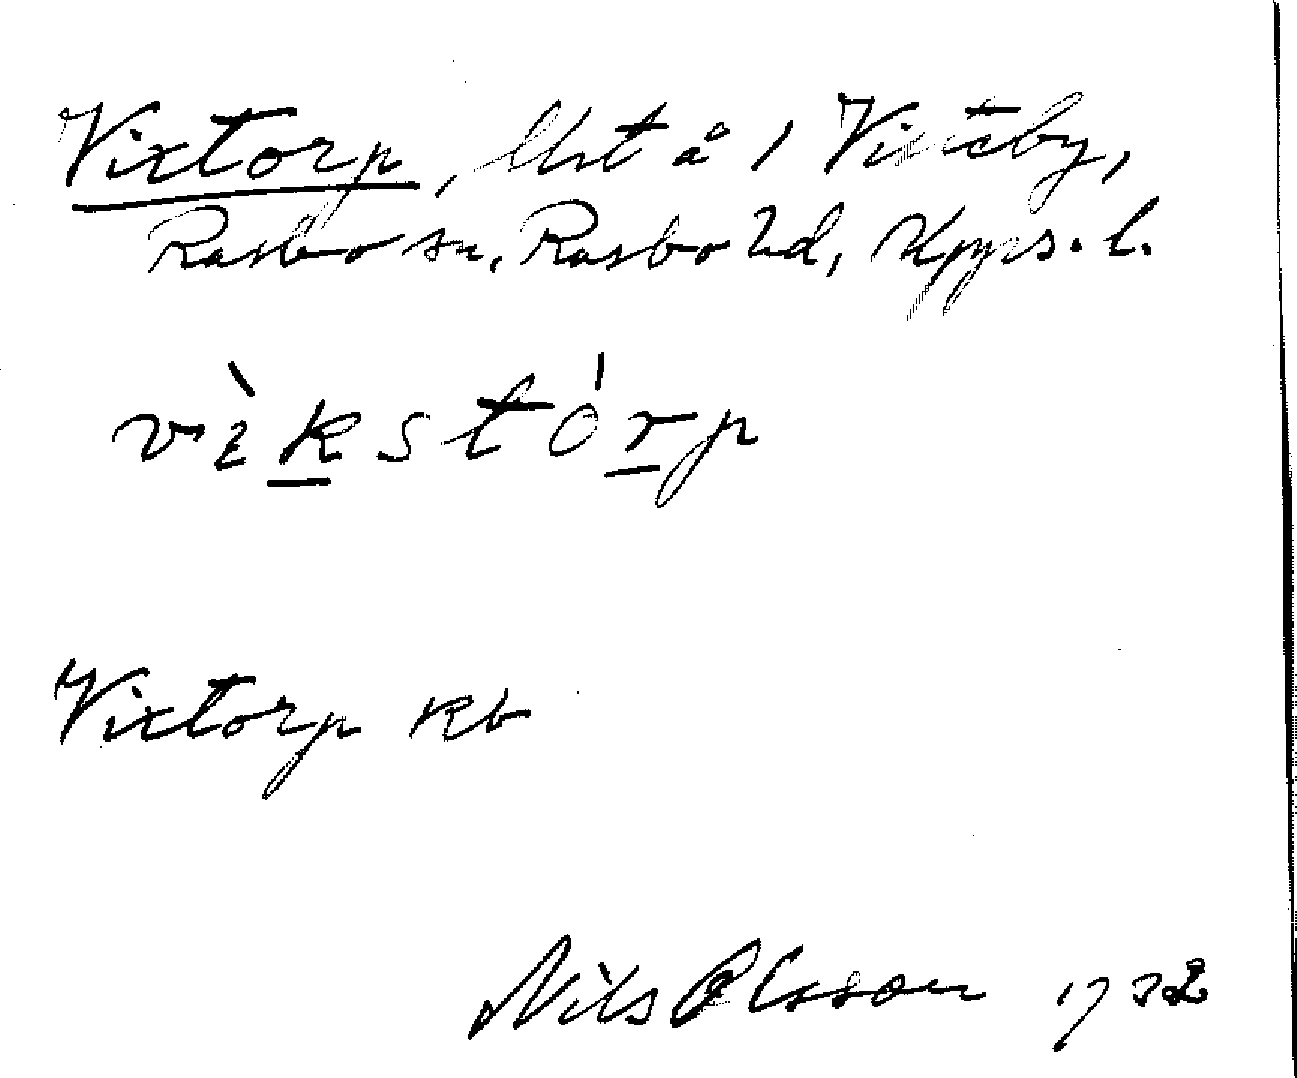 Vixtorp, lht å 1 Visteby,
Rasbo sn, Rasbo hd, Upps. l.
vὲkstórp
Vixtorp kb
Nils Olsson 1932